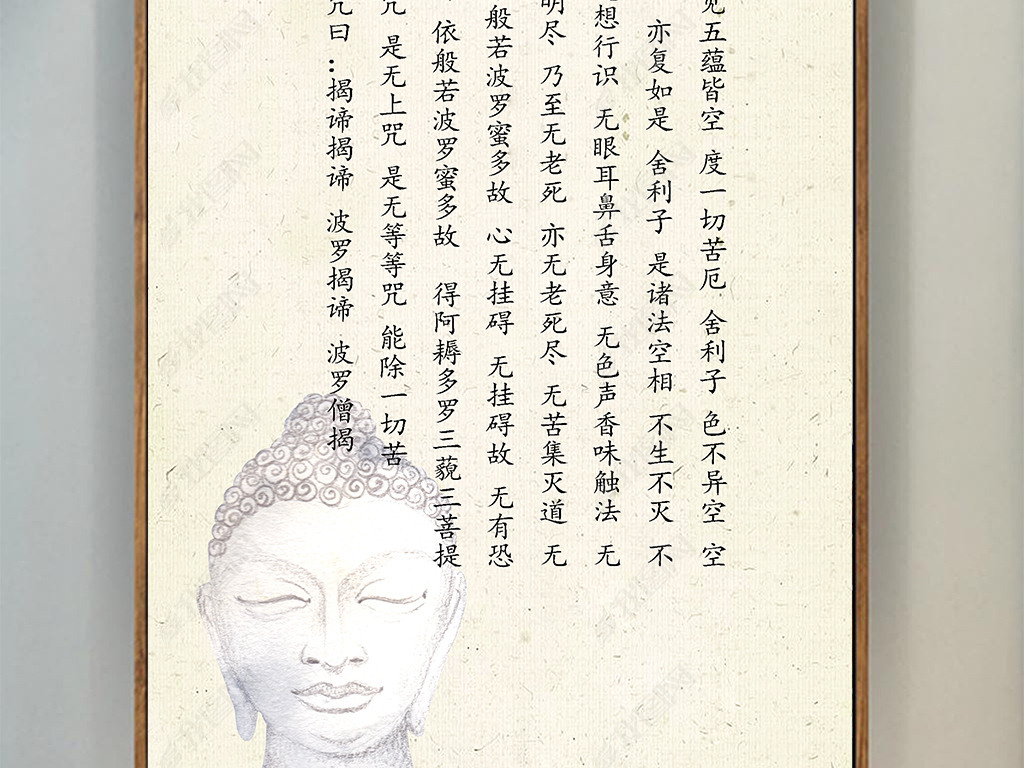 五蕴皆空 度一切苦厄 舍利子 色不异空 空
亦复如是 舍利子 是诸法空相 不生不灭 不
想行识 无眼耳鼻舌身意 无色声香味触法 无
明尽 乃至无老死 亦无老死尽 无苦集灭道 无
般若波罗蜜多故 心无挂碍 无挂碍故 无有恐
依般若波罗蜜多故 得阿耨多罗三藐三菩提
咒 是无上咒 是无等等咒 能除一切苦
咒曰 :揭谛揭谛 波罗揭谛 波罗僧揭